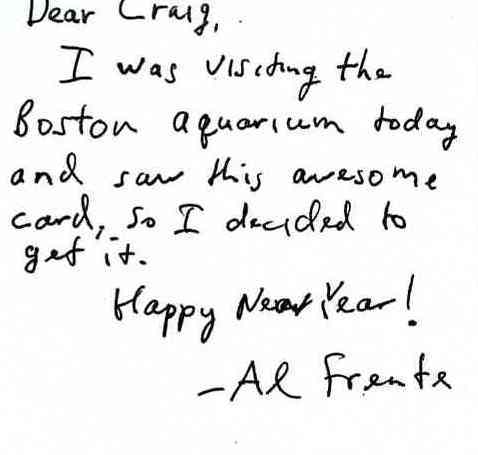 Dear Craig,
I was visiting the
Boston aquarium today
and saw this awesome
card, so I decided to
get it.
Happy New Year!
-Al Frente